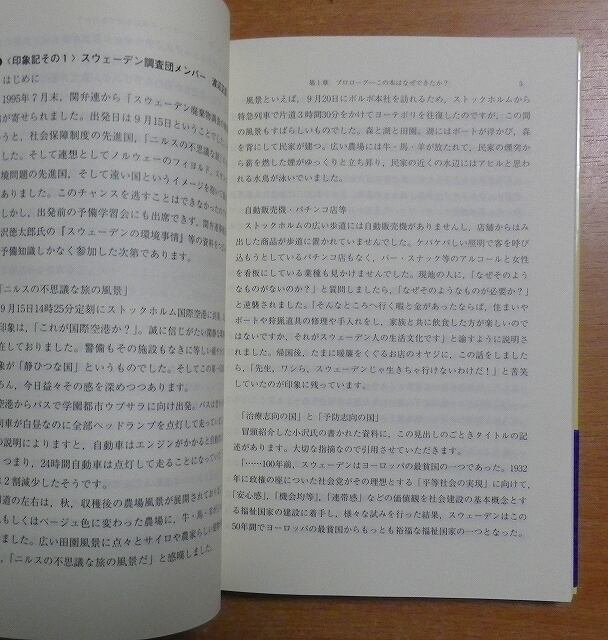 〈印象記その1〉スウェーデン調査団メンバー
はじめに
1995年7月末,関弁連から「スウェーデン廃棄物
が寄せられました。出発日は9月15日ということでし
うと,社会保障制度の先進国,「ニルスの不思議な
した。そして連想としてノルウェーのフィヨルド,
境問題の先進国,そして遠い国というイメージを
ありました。このチャンスを逃すことはできなかった
しかし,出発前の予備学習会にも出席できず,関弁連
沢徳太郎氏の『スウェーデンの環境事情』等の資料を
予備知識しかなく参加した次第であります。
「ニルスの不思議な旅の風景」
9月15日14時25分定刻にストックホルム国際空港に
印象は,「これが国際空港か?」。誠に信じがたい閑静な
在しておりました。警備もその施設もなきに等しい
象が「静ひつな国」というものでした。そしてこの第一
ろん,今日益々その感を深めつつあります。
空港からバスで学園都市ウプサラに向け出発。バスは
列車が白昼なのに全部ヘッドランプを点灯して走って
の説明によりますと,自動車はエンジンがかかると自動
つまり,24時間自動車は点灯して走ることになってい
は2割減少したそうです。
道の左右は,秋,収穫後の農場風景が展開されており
もしくはベージュ色に変わった農場に,牛・馬・羊が
ました。広い田園風景に点々とサイロや農家らしい
,「ニルスの不思議な旅の風景だ」と感嘆しました。
第1章 プロローグ―この本はなぜできたか? 5
風景といえば,9月20日にボルボ本社を訪れるため,ストックホルムから
特急列車で片道3時間30分をかけてヨーテボリを往復したのですが,この間
の風景もすばらしいものでした。森と湖と田園。湖にはボートが浮かび,森
を背にして民家が建つ。広い農場には牛・馬・羊が放たれて,民家の煙突か
ら薪を燃した煙がゆっくりと立ち昇り,民家の近くの水辺にはアヒルと思わ
れる水鳥が泳いでいました。
自動販売機・パチンコ店等
ストックホルムの広い歩道には自動販売機がありませんし,店舗からはみ
出した商品が歩道に置かれていませんでした。ケバケバしい照明で客を呼び
込もうとしているパチンコ店もなく,バー・スナック等のアルコールと女性
を看板にしている業種も見かけませんでした。現地の人に,「なぜそのよう
なものがないのか?」と質問しましたら,「なぜそのようなものが必要か?」
と逆襲されました。「そんなところへ行く暇と金があったならば,住まいや
ボートや狩猟道具の修理や手入れをし,家族と共に飲食した方が楽しいので
はないですか,それがスウェーデン人の生活文化です」と諭すように説明さ
れました。帰国後,たまに暖簾をくぐるお店のオヤジに,この話をしました
ら,「先生,ワシら,スウェーデンじゃ生きちゃ行けないわけだ!」と苦笑
していたのが印象に残っています。
「治療志向の国」と「予防志向の国」
冒頭紹介した小沢氏の書かれた資料に,この見出しのごときタイトルの記
述があります。大切な指摘なので引用させていただきます。
「……100年前,スウェーデンはヨーロッパの最貧国の一つであった。1932
年に政権の座についた社会党がその理想とする「平等社会の実現」に向けて,
「安心感」,「機会均等」,「連帯感」などの価値観を社会建設の基本概念とす
る福祉国家の建設に着手し,様々な試みを行った結果,スウェーデンはこの
50年間でヨーロッパの最貧国からもっとも裕福な福祉国家の一つとなった。